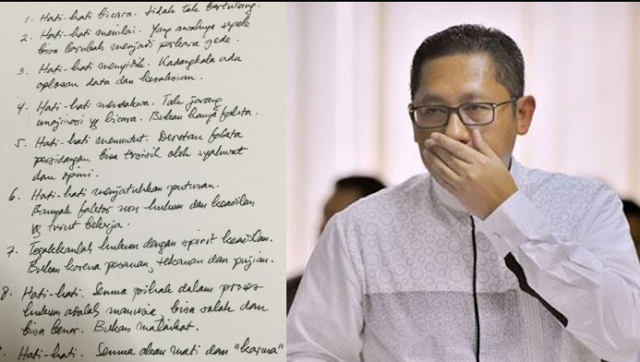 1. Hati-hati bicara. Lidah tak bertulang.
2. Hati-hati menilai. Yang awalnya sepele
bisa berubah menjadi perkara gede.
3. Hati-hati menyidik. Kadangkala ada
oplosan data dan kesaksian.
4. Hati-hati mendakwa. Tak jarang
imajinasi yg bicara. Bukan hanya fakta.
5. Hati-hati menuntut. Deretan fakta
persidangan bisa tersisih oleh syahwat
dan opini.
6. Hati-hati menjatuhkan putusan.
Banyak faktor non hukum dan keadilan
yg turut bekerja.
7. Tegakkanlah hukum dengan spirit keadilan.
Bukan karena pesanan, tekanan dan pujian.
8. Hati-hati. Semua pihak dalam proses
hukum adalah manusia, bisa salah dan
bisa benar. Bukan malaikat.
Hati-hati. Semua akan mati dan "karma"